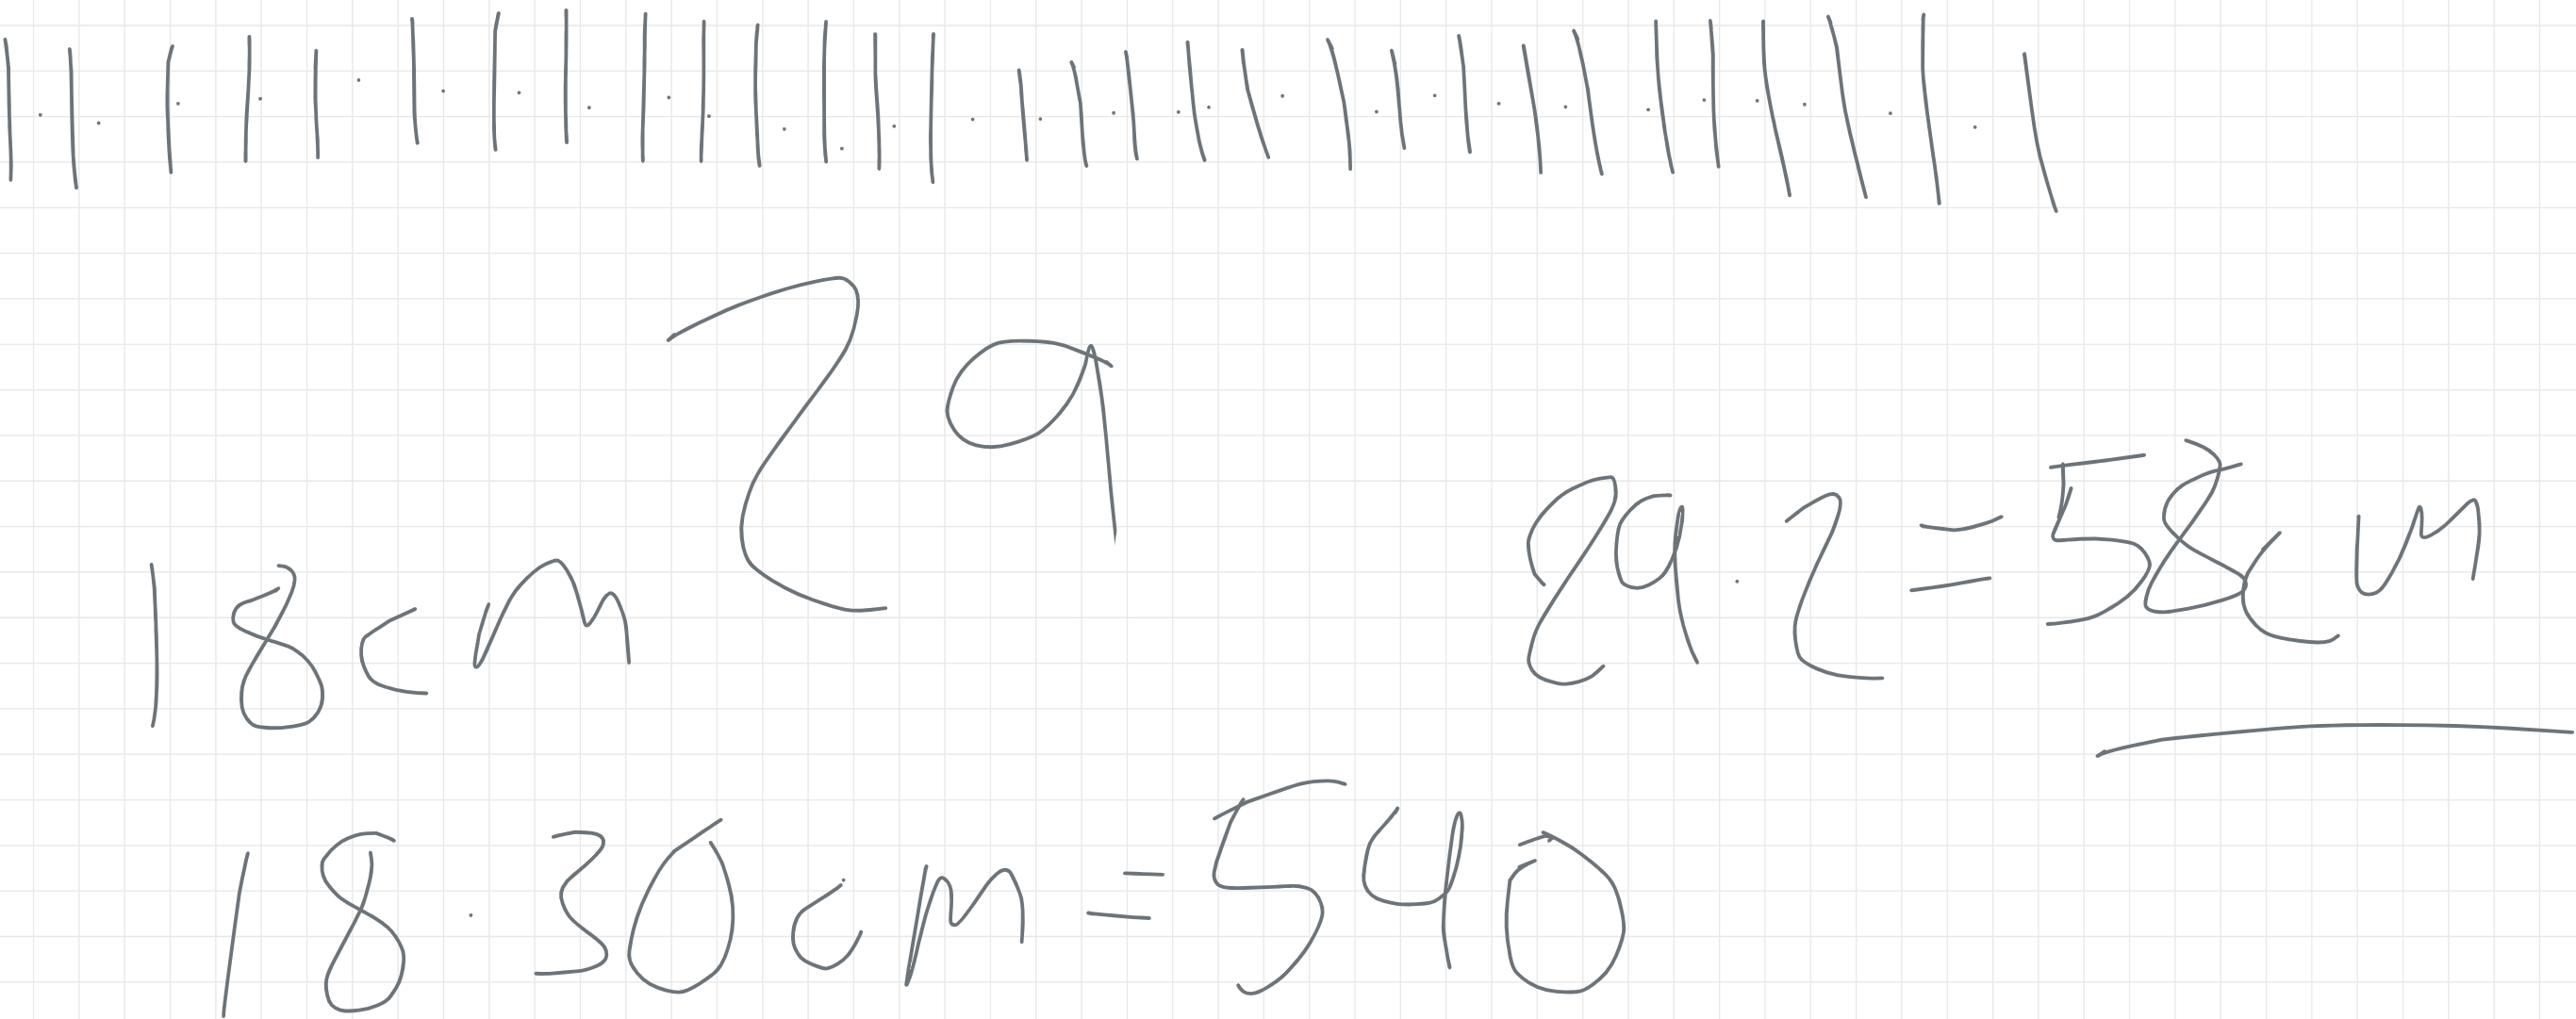 29
18cm
29·2=58cm
18·30cm=540